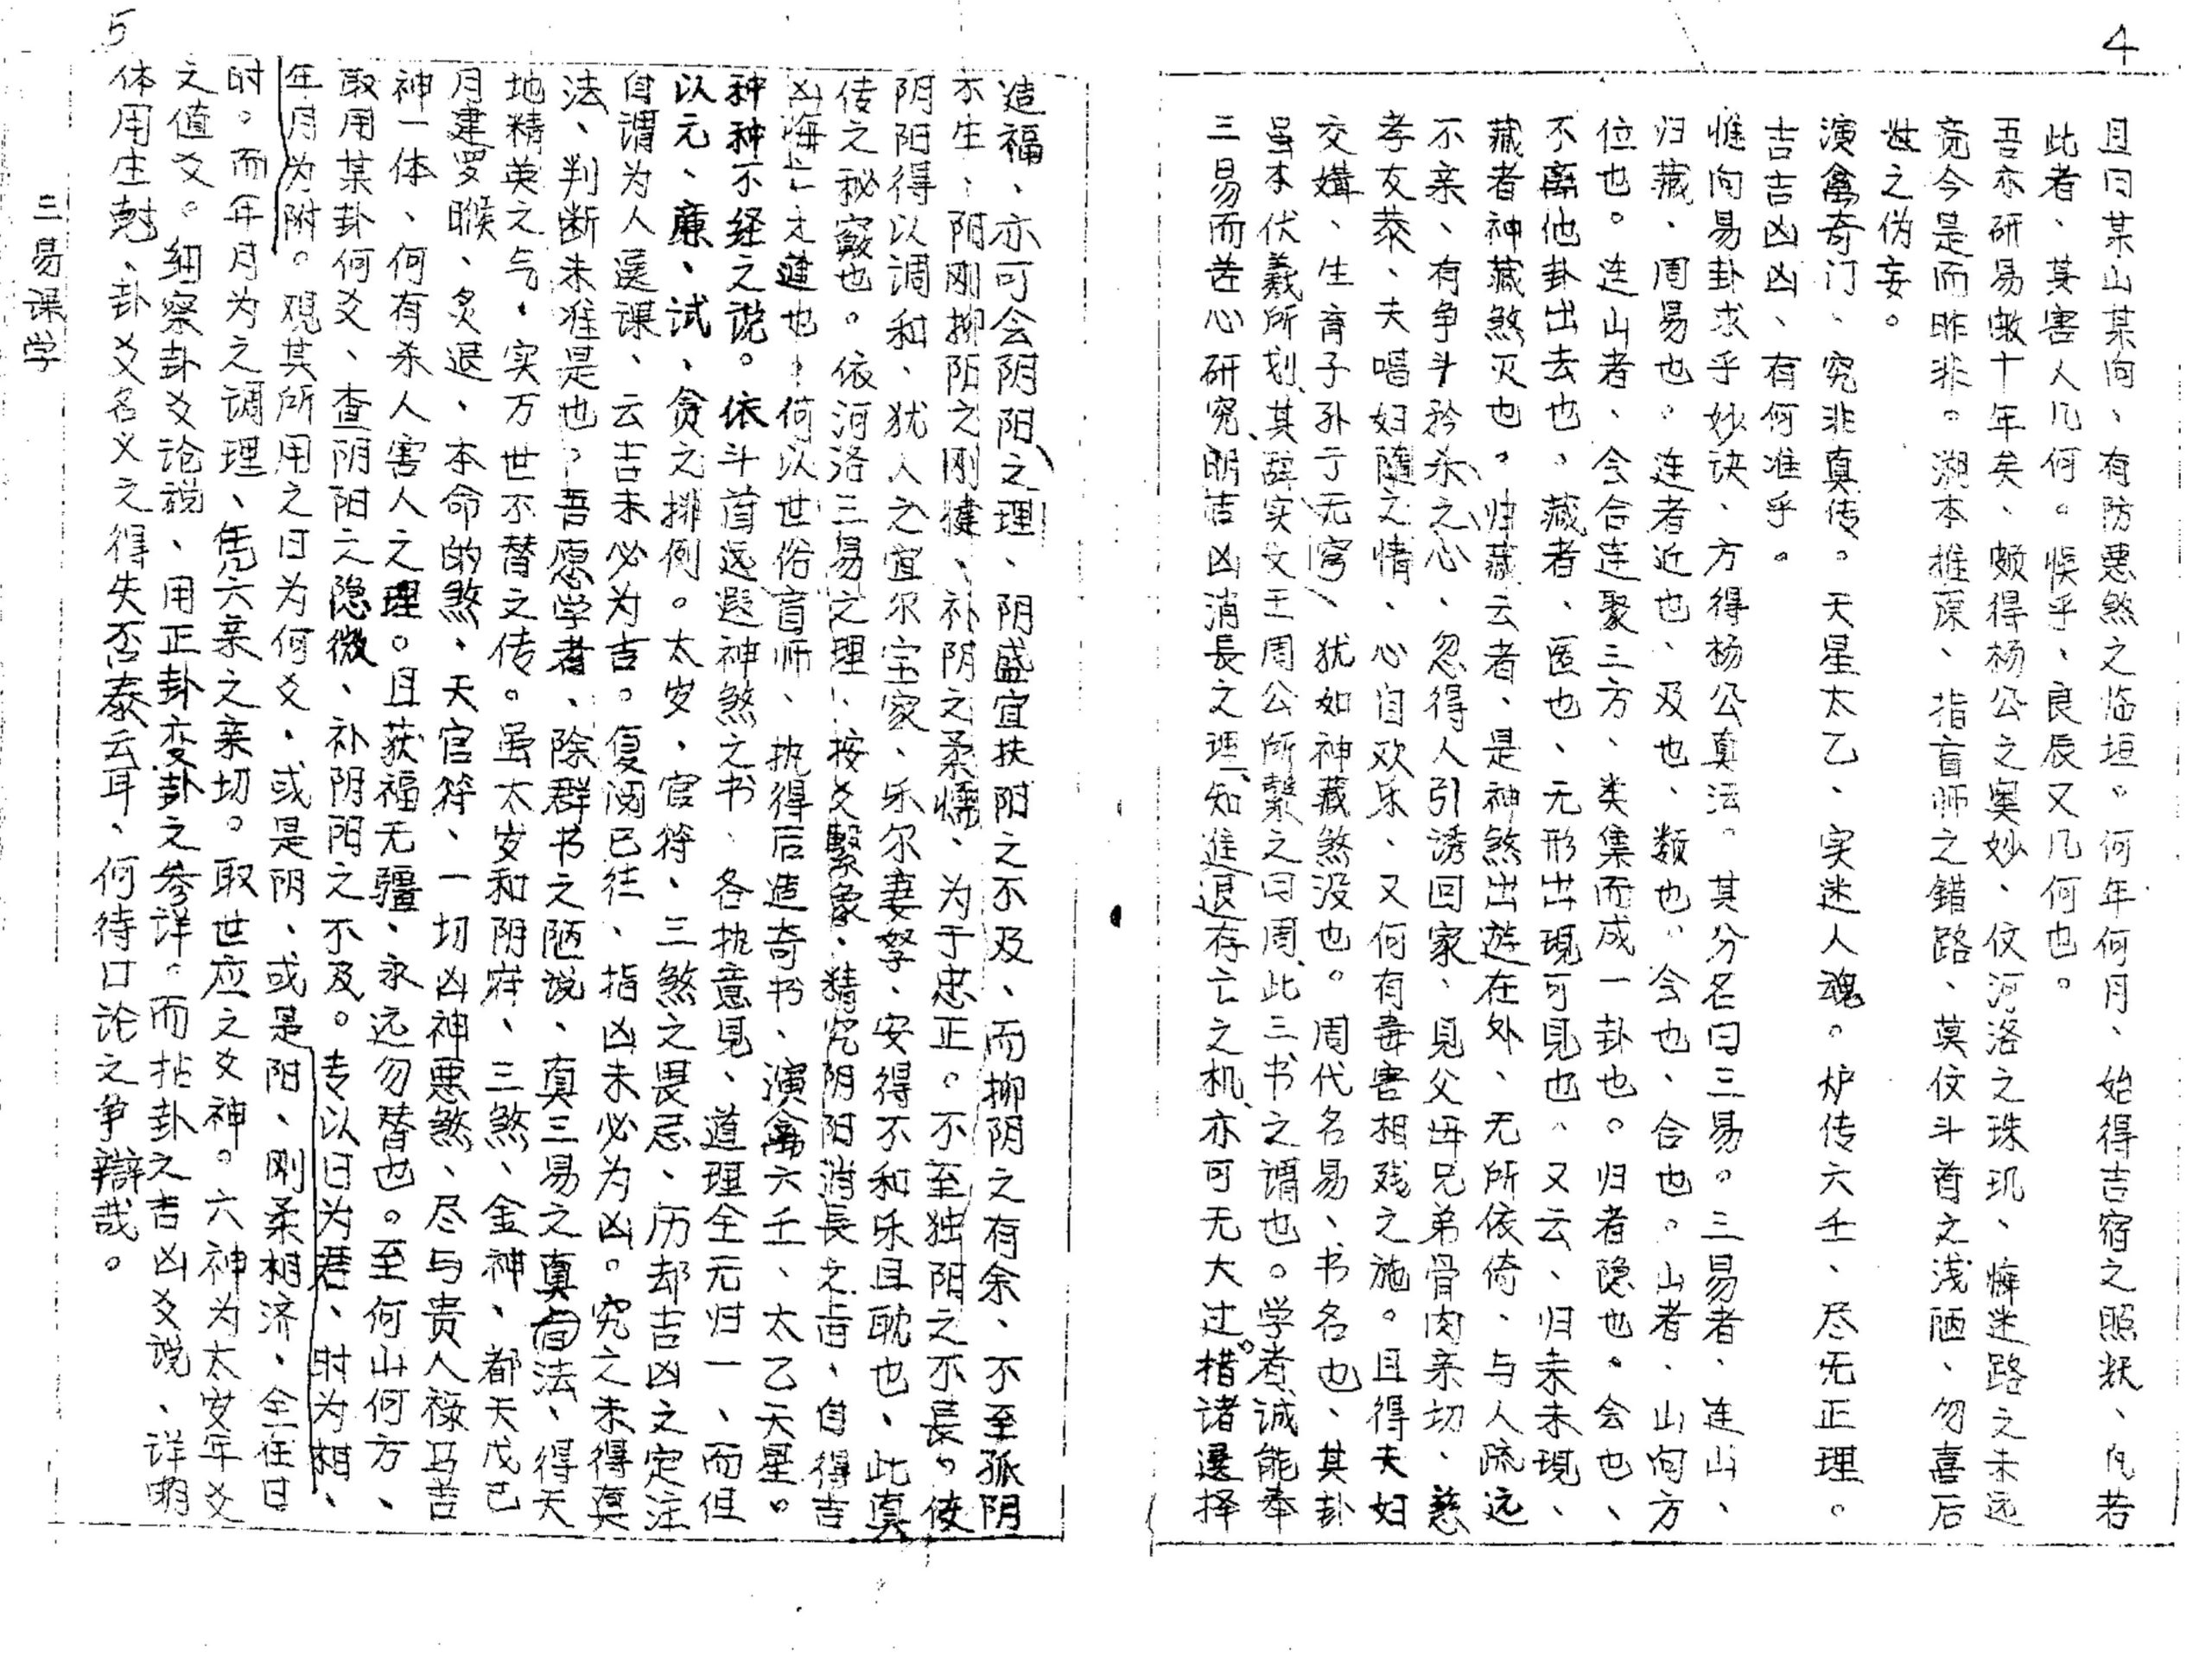 4
且曰某山某向、有防恶煞之临垣。何年何月、始得吉宿之照粎、凡若
此者、其害人几何。悞乎、良辰又几何也。
吾亦研易敝十年矣、颇得杨公之奥妙、仗河洛之珠玑、癣迷路之未远
竟今是而昨非。溯本推原、指盲师之錯路、莫仗斗首之浅陋、勿喜后
世之伪妄。
演禽奇门、究非真传。天星太乙、实迷人魂。炉传六壬、尽无正理。
吉吉凶凶、有何准乎。
惟向易卦求乎妙诀、方得杨公真法。其分名曰三易。三易者、连山、
归藏、周易也。连者近也、及也、类也、会也、合也。山者、山向方
位也。连山者、会合连聚三方、类集而成一卦也。归者隐也。会也、
不离他卦出去也。藏者、匿也、无形出现可见也。又云、归未未现、
藏者神藏煞灭也。归藏云者、是神煞出遊在外、无所依倚、与人疏远
不亲、有争斗矜杀之心、忽得人引诱回家、見父母兄弟骨肉亲切、慈
孝友恭、夫唱妇隨之情、心自欢乐、又何有毒害相残之施。且得夫妇
交媾、生育子孙于无穷、犹如神藏煞没也。周代名易、书名也、其卦
虽本伏羲所划、其辞实文王周公所繫之曰周、此三书之谓也。学者诚能奉
三易而苦心研究、明吉凶消長之理、知進退存亡之机、亦可无大过。措诸選择
5
造福、亦可会阴阳之理、阴盛宜扶阳之不及、而抑阴之有余、不至孤阴
不生、阴刚抑阳之刚揵、补阴之柔懦、为于忠正。不至独阴之不長。使
阴阳得以调和、犹人之宜尔室家、乐尔妻孥、安得不和乐且耽也、此真
传之秘竅也。依河洛三易之理、按爻繫象、精究阴阳消長之旨、自得吉
凶悔之道也、何以世俗盲师、执得后造奇书、演禽六壬、太乙天星。
种种不经之说。依斗首远遐神煞之书、各执意見、道理全元归一、而但
以元、廉、试、贪之排例。太岁、官符、三煞之畏忌、历却吉凶之定注
自谓为人選课、云吉未必为吉。復阅已往、指凶未必为凶。究之未得真
法、判断未准是也。吾愿学者、除群书之陋说、真三易之真旨法、得天
地精英之气、实万世不替之传。虽太岁和阴府、三煞、金神、都天戊己
月建罗睺、炙退、本命的煞、天官符、一切凶神悪煞、尽与贵人禄马吉
神一体、何有杀人害人之理。且获福无疆、永远勿替也。至何山何方、
取用某卦何爻、查阴阳之隐微、补阴阳之不及。专以日为君、时为相、
年月为附。观其所用之日为何爻、或是阴、或是阳、刚柔相济、全在日
时。而年月为之调理、凭六亲之亲切。取世应之爻神。六神为太岁年爻
之值爻。细察卦爻论说、用正卦变卦之参详。而拈卦之吉凶爻说、详明
体用生尅、卦爻名义之得失否泰云耳、何待口论之争辩哉。
三易课学